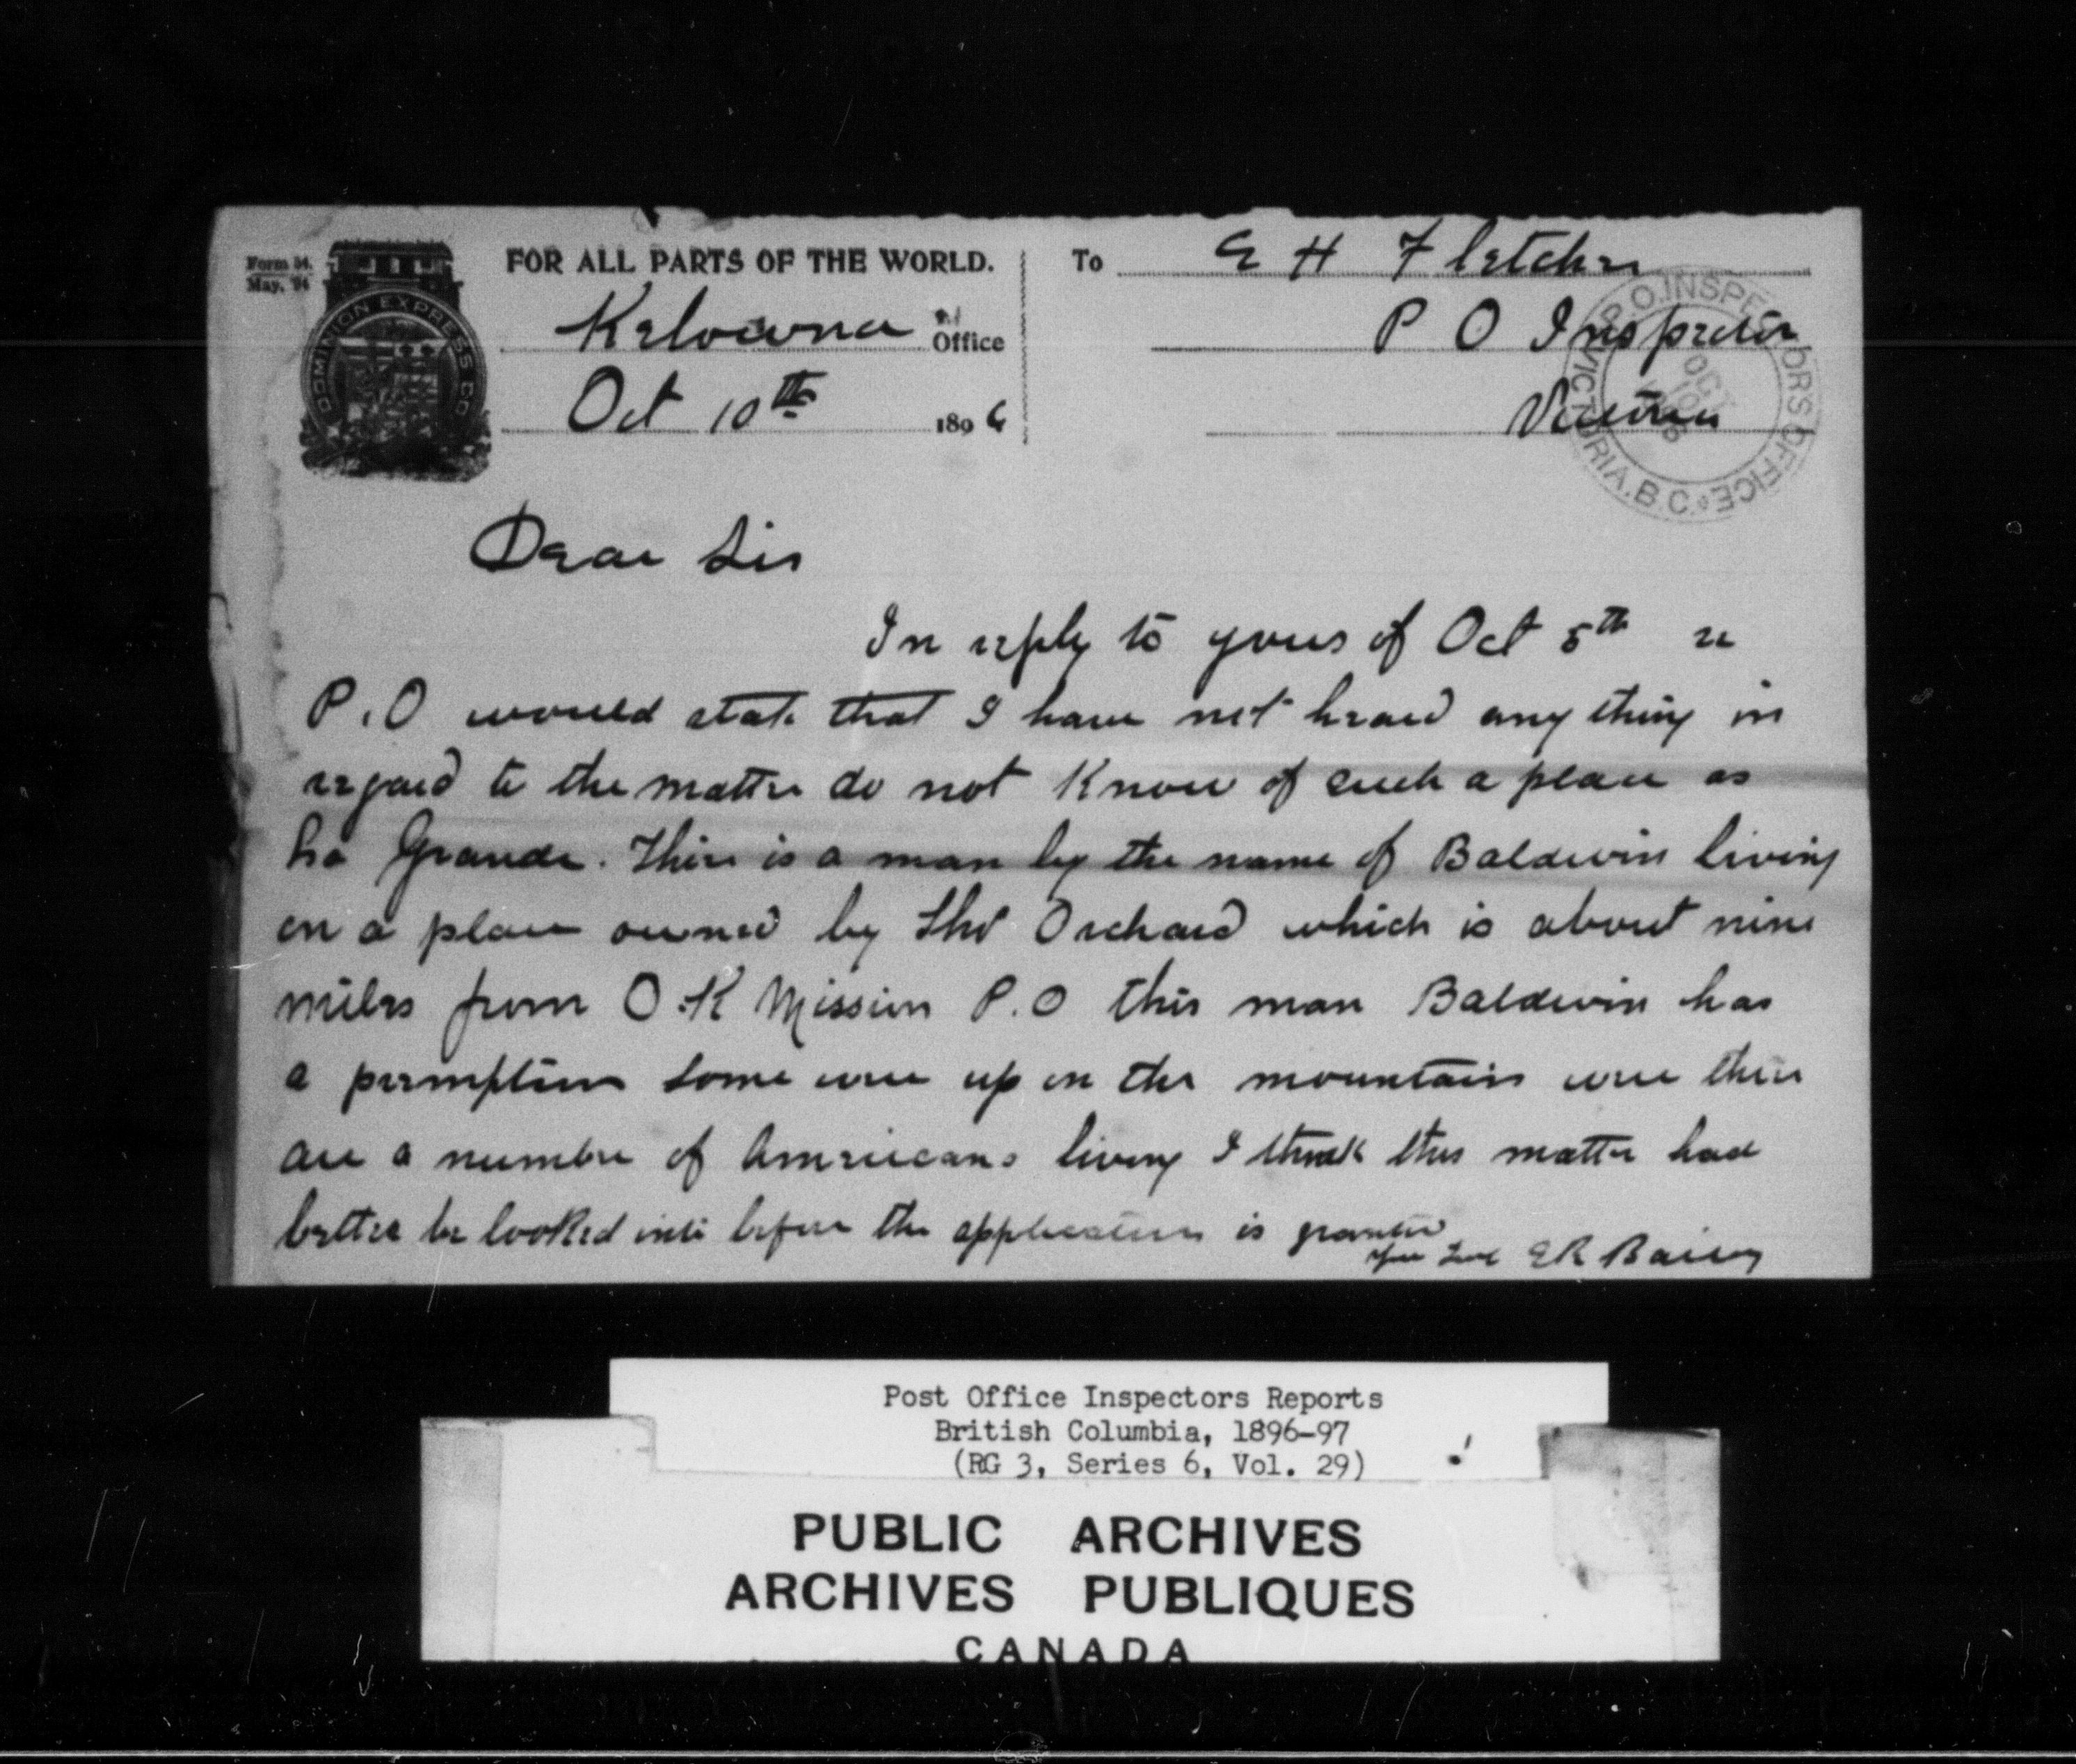 Form 54.
May, '94
DOMINION EXPRESS CO
FOR ALL PARTS OF THE WORLD.
Kelowna Office
Oct 10th 1896
To E H Fletcher
P O Inspector
Victoria
P.O. INSPECTORS OFFICE VICTORIA. B.C.
OCT
Dear Sir
In reply to yours of Oct 5th re
P.O would state that I have not heard any thing in
regard to the matter do not Know of such a place as
La Grande. There is a man by the name of Baldwin living
on a place owned by Orchard which is about nine
miles from O.K Mission P.O this man Baldwin has
a premption some were up on the mountain were there
are a number of Americans living I think this matter had
better be looked into before the application is granted
E R Bailey
Post Office Inspectors Reports
British Columbia, 1896-97
(RG 3, Series 6, Vol. 29)
PUBLIC ARCHIVES
ARCHIVES PUBLIQUES
CANADA